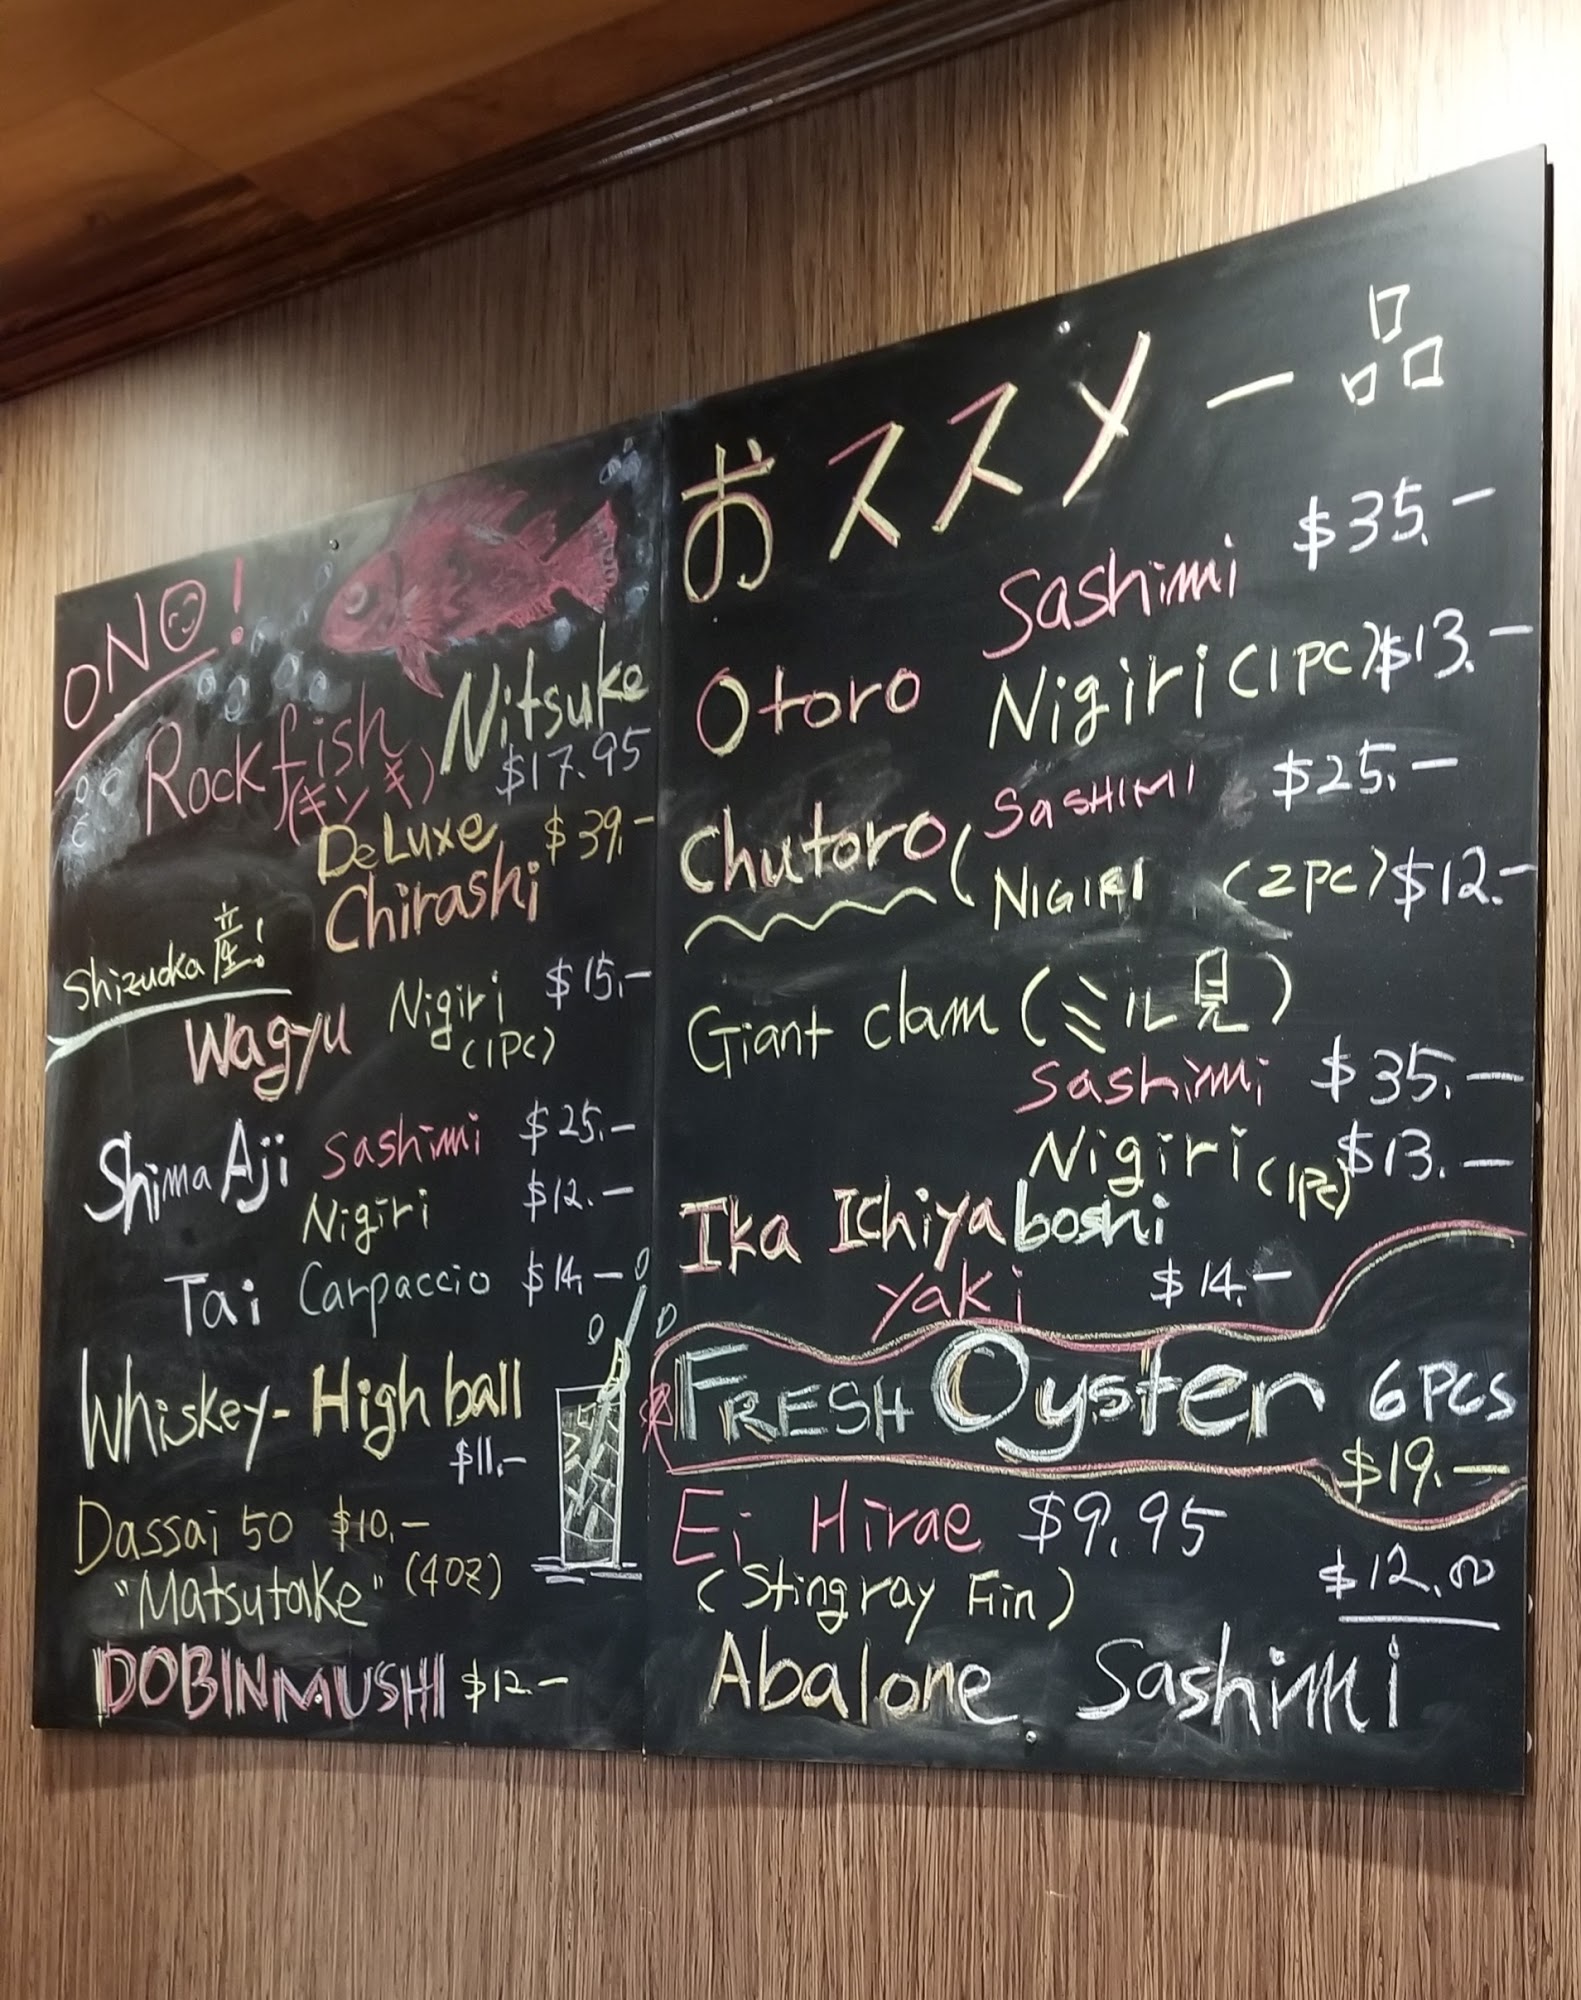 ONO!
Rockfish Nitsuke
(キンキ) $17.95
DeLuxe $39.-
Chirashi
Shizuoka産!
Wagyu Nigiri $15.-
(1PC)
Shima Aji Sashimi $25.-
Nigiri $12.-
Tai Carpaccio $14.-
Whiskey-High ball
$11.-
Dassai 50 $10.-
"Matsutake" (4OZ)
DOBINMUSHI $12-
おススメ一品
Sashimi $35.-
Otoro Nigiri (1PC) $13.-
Chutoro ( SASHIMI $25.-
NIGIRI (2PC) $12.-
Giant clam (ミル見)
Sashimi $35.-
Nigiri (1PC) $13.-
Ika Ichiyaboshi
Yaki $14.-
FRESH Oyster 6PCS
$19.-
Ei Hirae $9.95
(Stingray Fin) $12.00
Abalone Sashimi